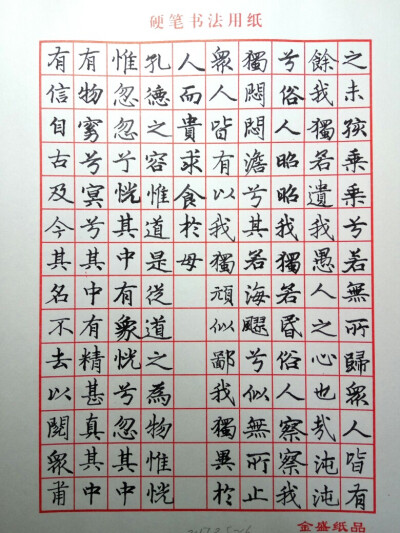 硬笔书法用纸
之未孩乘乘兮若無所歸衆人皆有
餘我獨若遺我愚人之心也哉沌沌
兮俗人昭昭我獨若昏俗人察察我
獨悶悶澹兮其若海飂兮似無所止
衆人皆有以我獨頑似鄙我獨異於
人而貴求食於母
孔德之容惟道是從道之為物惟恍
惟忽忽兮恍其中有象恍兮忽其中
有物窈兮冥兮其中有精甚真其中
有信自古及今其名不去以閱衆甫
金盛纸品